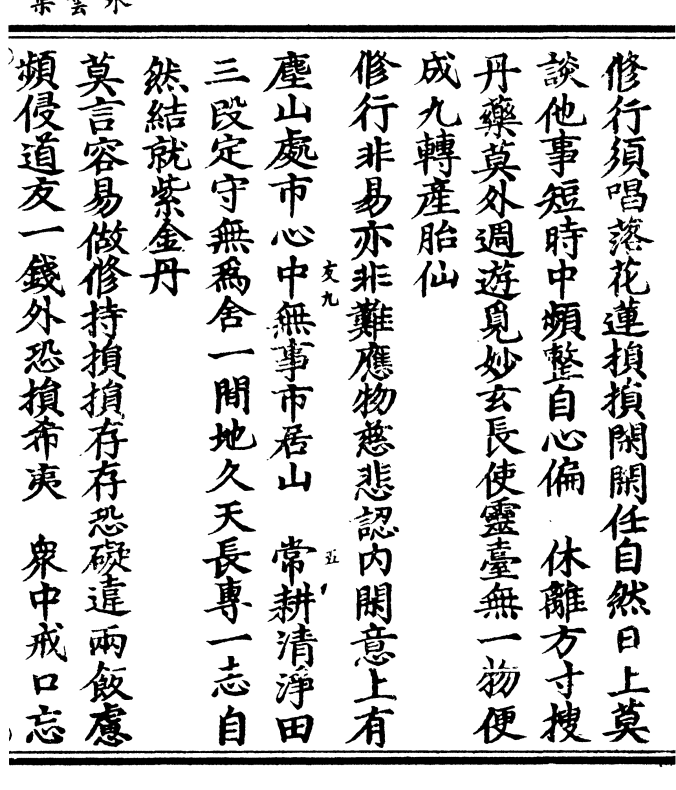 修行須唱落花蓮損損閑閑任自然日上莫
談他事短時中頻整自心偏　休離方寸搜
丹藥莫外週遊覓妙玄長使靈臺無一物便
成九轉產胎仙
修行非易亦非難應物慈悲認內閑意上有
塵山處市心中無事市居山　常耕清淨田
三段定守無爲舍一間地久天長專一志自
然結就紫金丹
莫言容易做修持損損存存恐礙違兩飯慮
頻侵道友一錢外恐損希夷　衆中戒口忘